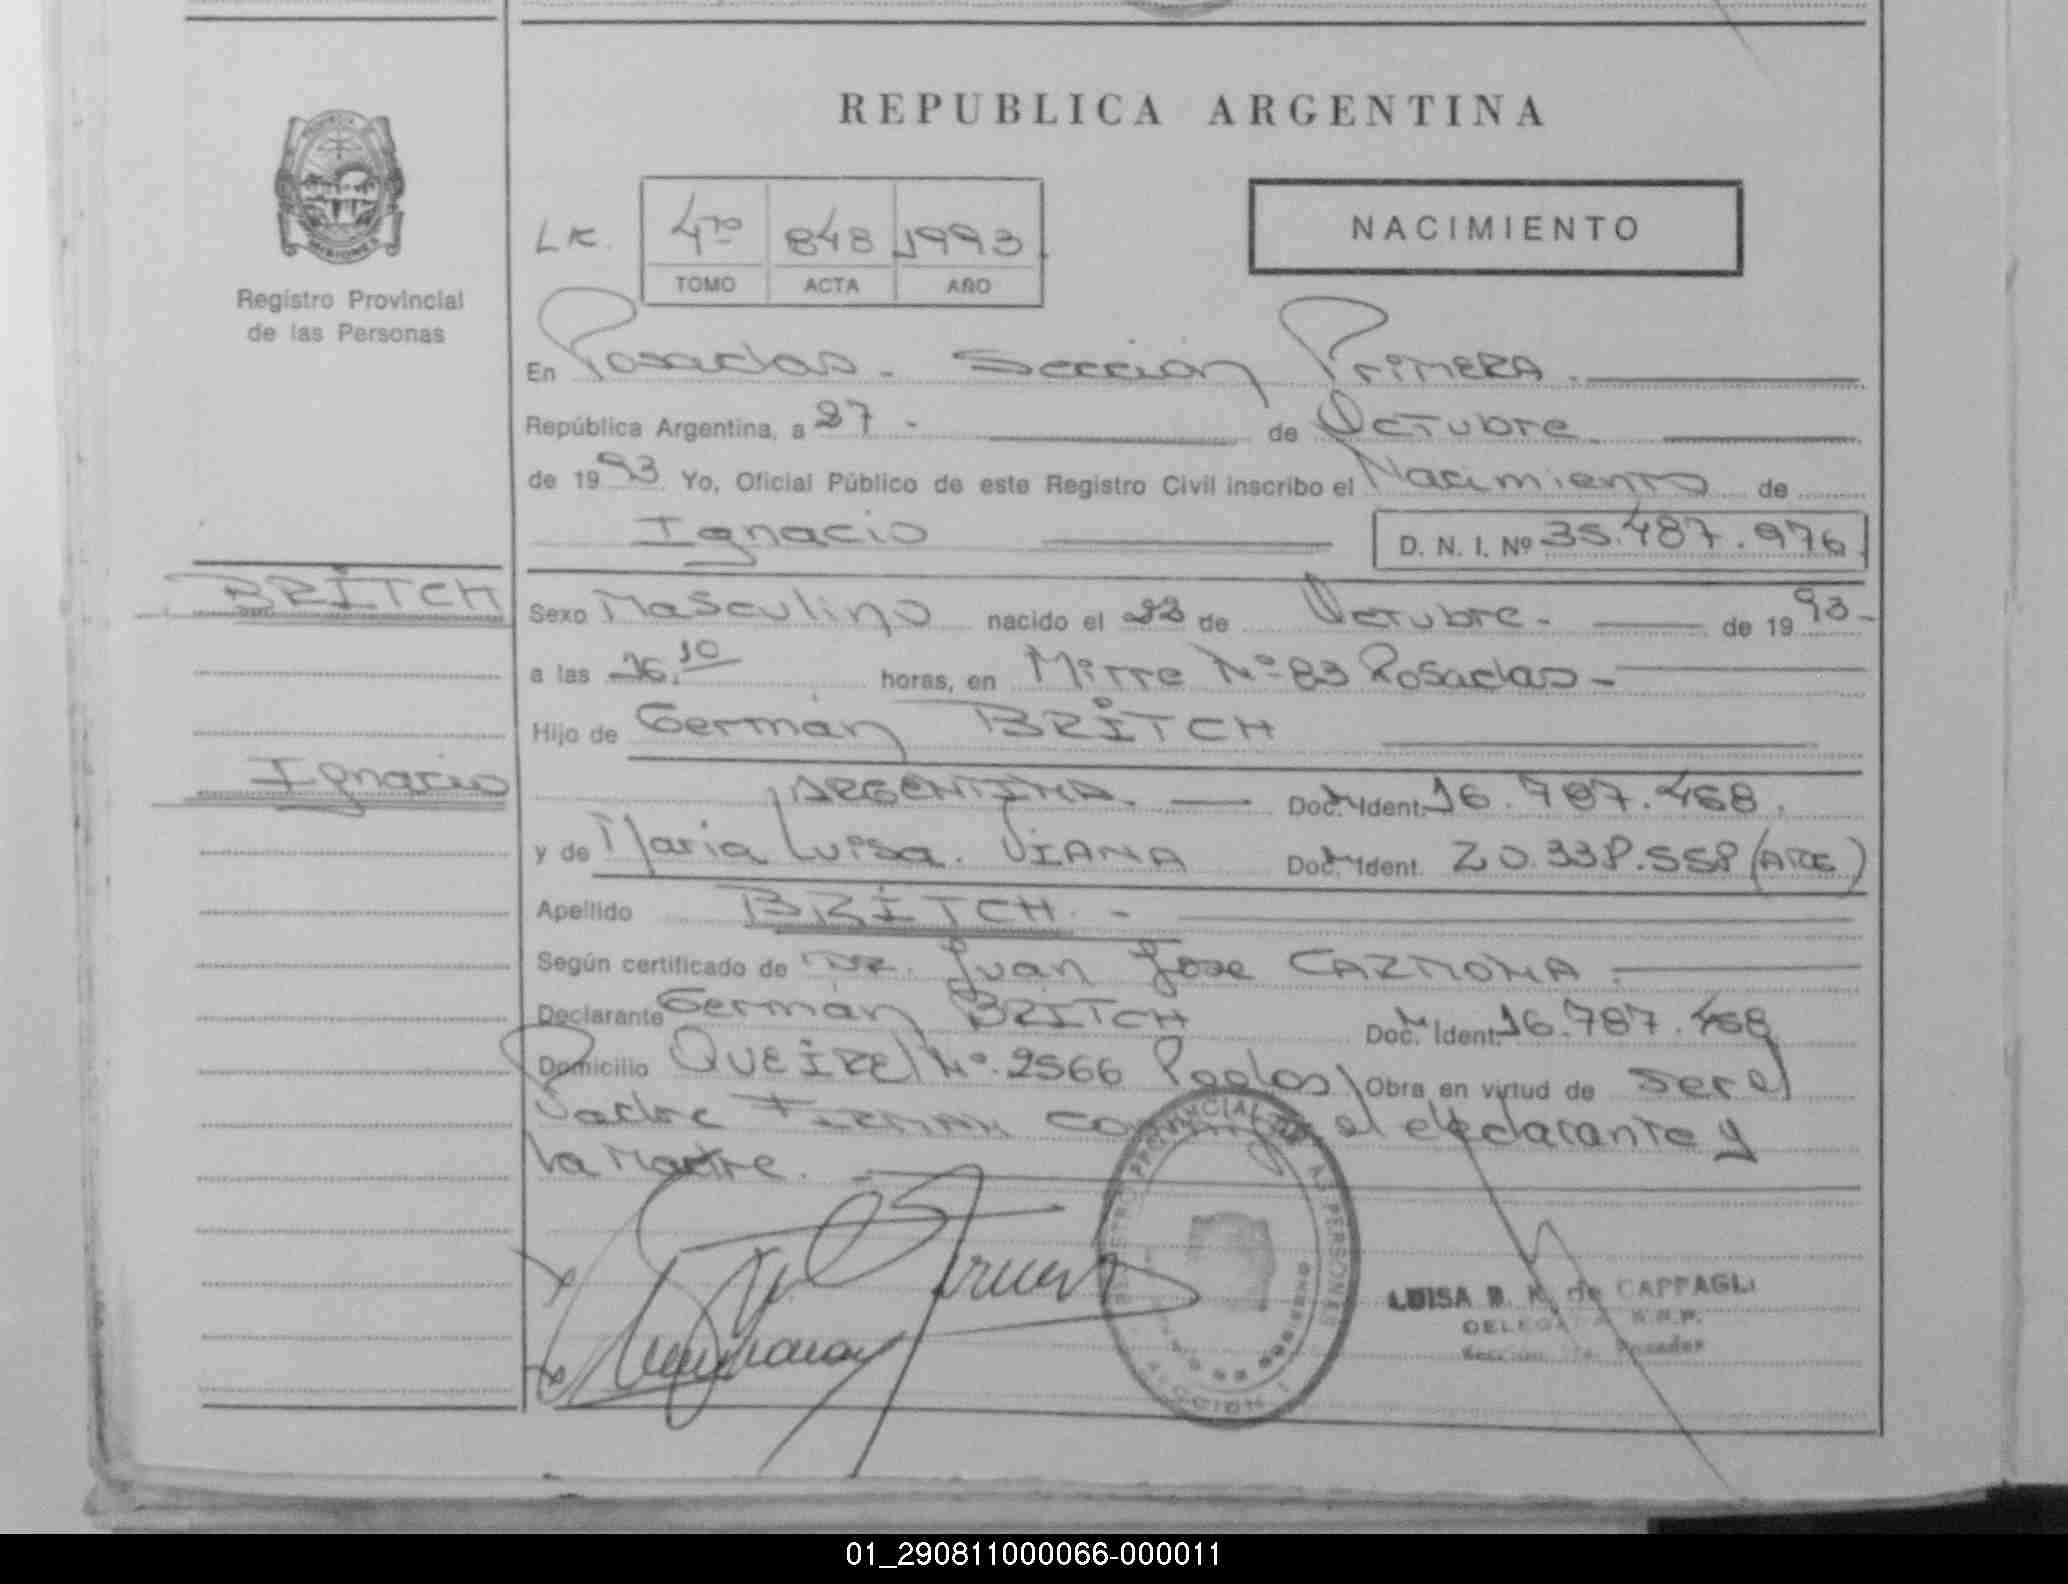 REPUBLICA ARGENTINA
Registro Provincial
de las Personas
LK. 4to 848 1993
TOMO ACTA AÑO
NACIMIENTO
En Posadas - Sección PRIMERA.
República Argentina, a 27 - de Octubre
de 1993 Yo, Oficial Público de este Registro Civil inscribo el Nacimiento de
Ignacio D. N. I. Nº 35.487.976
BRITCH
Sexo Masculino nacido el 22 de Octubre - de 1993 -
a las 16.10 horas, en Mitre Nº 83 Posadas -
Hijo de Germán BRITCH
Ignacio
ARGENTINA. Doc. Ident. 16.787.468.
y de María Luisa. VIANA Doc. Ident. 20.338.558 (ARG)
Apellido BRITCH. -
Según certificado de DR. Juan Jose CARMONA.
Declarante Germán BRITCH Doc. Ident. 16.787.468
Domicilio QUEIREL Nº. 2566 Pdas Obra en virtud de ser el
Padre FIRMAN el declarante y
la Madre.
REGISTRO PROVINCIAL DE LAS PERSONAS
LUISA B. K. de CAPPAGLI
DELEGADA R.P.P.
Sección 1ra. Posadas
01_290811000066-000011